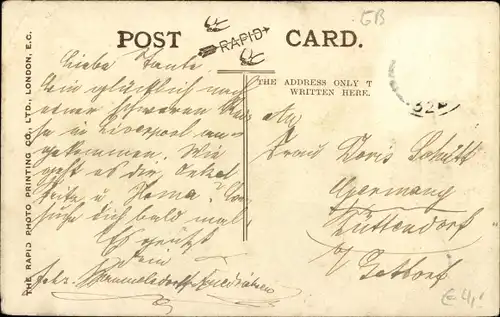 GB
POST CARD.
RAPID
THE ADDRESS ONLY T
WRITTEN HERE.
THE RAPID PHOTO PRINTING CO., LTD., LONDON, E.C.
Liebe Tante.
Bin glücklich nach
einer schweren Rei
se in Liverpool an
gekommen. Wie
geht es dir, Onkel
u. Mama?
suche dich bald mal
Es grüsst
Dein
An
Frau Doris Schütt
Germany
Lüttendorf
b/ Gettorf
324
€4,-